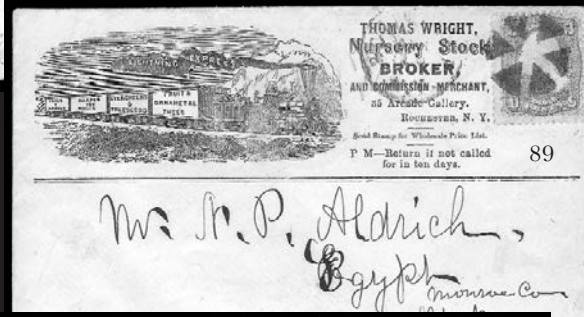 LIGHTNING EXPRESS
FRUIT &
ORNAMETAL
TREES
EVERGREENS
THOMAS WRIGHT,
Nursery Stock
BROKER,
AND COMMISSION MERCHANT,
35 Arcade Gallery.
ROCHESTER, N. Y.
Send Stamp for Wholesale Price List.
P M—Return if not called
for in ten days.
89
Mr. N. P. Aldrich,
Egypt
Monroe Co